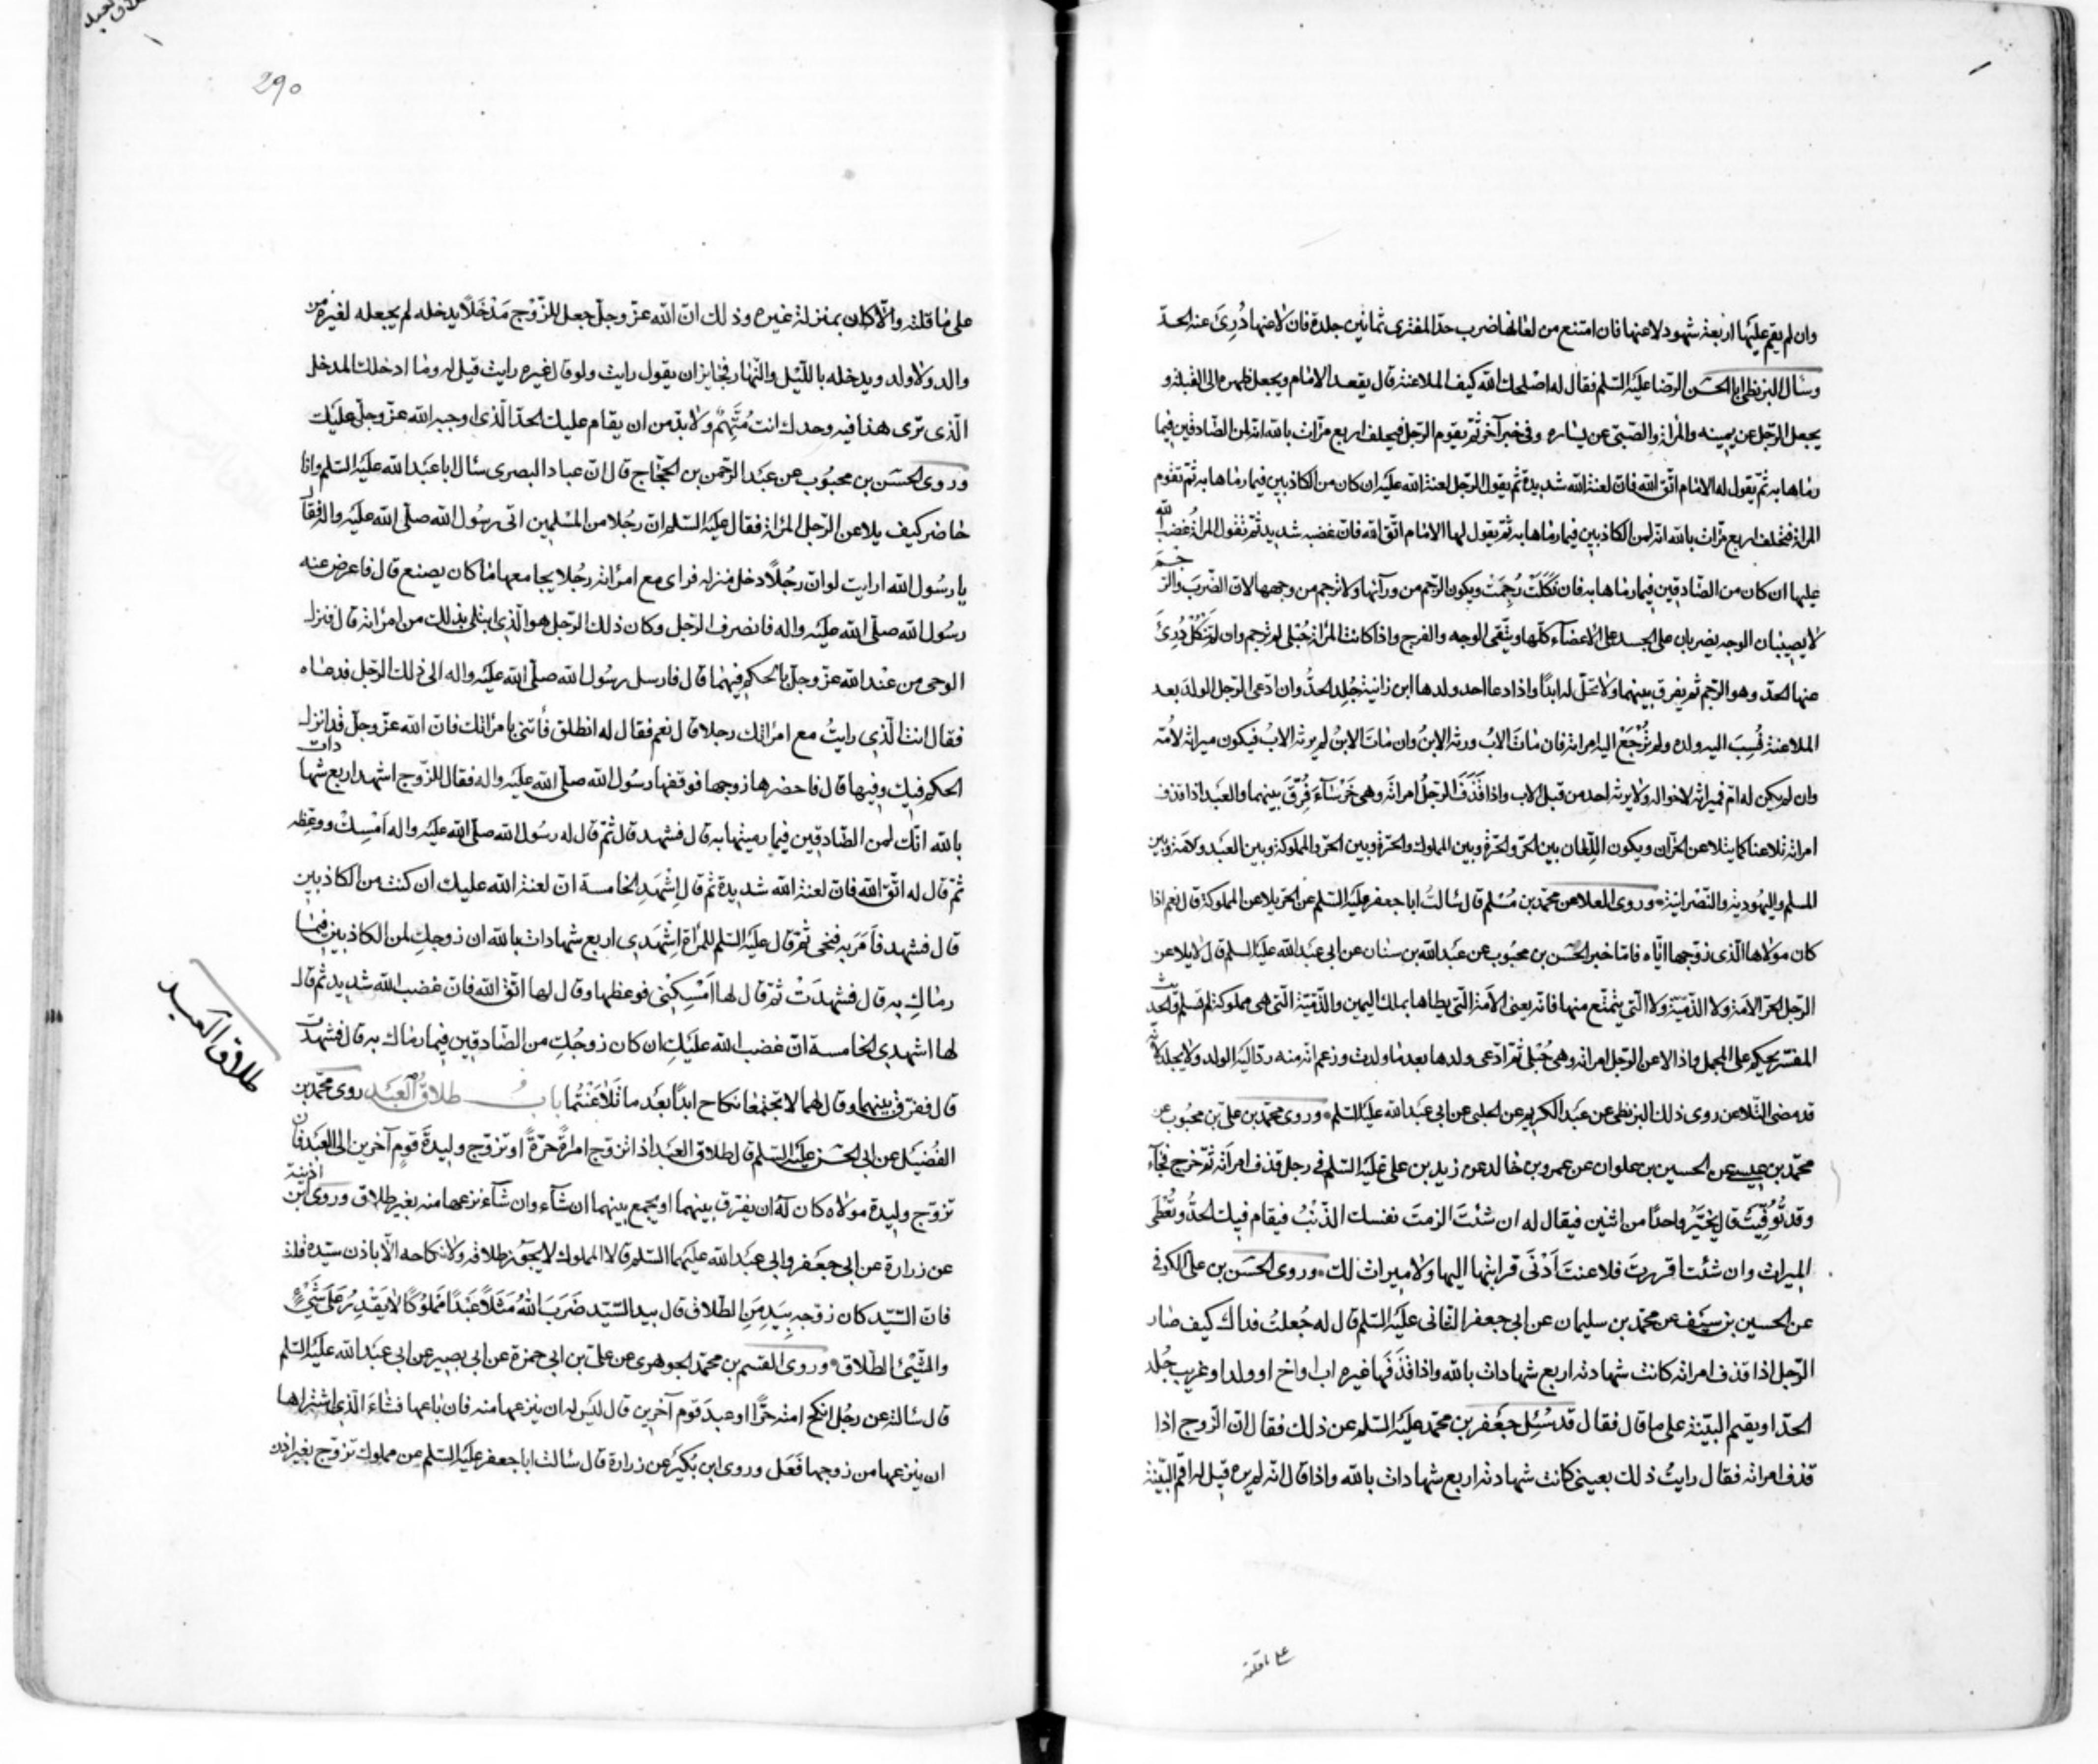 وان لم يقم عليها اربعة شهود لاعنها فان امتنع من لعانها ضرب حدّ المفترى ثمانين جلدة فان لاعنها دُرِئَ عنه الحدّ
وسأل البزنطى ابا الحسَن الرّضا عليه السّلم فقال له اصلحك الله كيف الملاعنة قال يقعد الامام ويجعل ظهره الى القبلة و
يجعل الرّجل عن يمينه والمرأة والصّبىّ عن يساره وفى خبر آخر ثمّ يقوم الرّجل فيحلف اربع مرّات بالله انّه لمن الصّادقين فيما
رماها به ثمّ يقول له الامام اتّق الله فانّ لعنة الله شديدة ثمّ يقول الرّجل لعنة الله عليه ان كان من الكاذبين فيما رماها به ثمّ تقوم
المرأة فتحلف اربع مرّات بالله انّه لمن الكاذبين فيما رماها به ثمّ يقول لها الامام اتّق الله فانّ غضبه شديد ثمّ تقول المرأة غضب الله
عليها ان كان من الصّادقين فيما رماها به فان نَكَلَتْ رُجِمَتْ ويكون الرّجم من ورآئها ولا ترجم من وجهها لانّ الضّربَ والرّجمَ
لا يصيبان الوجه يضربان على الجسد على الاعضآء كلّها ويتّقى الوجه والفرج واذا كانت المرأة حُبْلى لم ترجم وان لم تَنْكُلْ دُرِئَ
عنها الحدّ وهو الرّجم ثم يفرق بينهما ولا تحلّ له ابدًا واذا دعا احد ولدها ابن زانية جُلِد الحدَّ وان ادّعى الرّجل الولدَ بعد
الملاعنة نُسِبَ اليه ولده ولم تُرْجَعْ اليه امراته فان ماتَ الابُ ورثه الابنُ وان ماتَ الابنُ لم يرثه الابُ فيكون ميراثه لاُمّه
وان لم يكن له امّ فميراثه لاخواله ولا يرثه احد من قبل الاب واذا قَذَفَ الرّجلُ امراتَه وهى خَرْسَآء فُرِّقَ بينهما والعبد اذا قذف
امراته تلاعنا كما يتلاعن الحرّان ويكون اللّعان بين الحرّ والحرّة وبين المملوك والحرّة وبين الحرّ والمملوكة وبين العبد والامة وبين
المسلم واليهوديّة والنّصرانيّة وروى العلا عن محمّد بن مُسْلم قال سالتُ ابا جعفر عليه السّلم عن الحرّ يلاعن المملوكة قال نعم اذا
كان مولاها الّذى زوّجها ايّاه فامّا خبر الحسَن بن محبُوب عن عبد الله بن سنان عن ابى عبد الله عليه السلم قال لا يلاعن
الرّجل الحرّ الامة ولا الذّميّة ولا الّتى يتمتّع منها فانّه يعنى الامة الّتى يطاها بملك اليمين والذّميّة الّتى هى مملوكة لم تسلم والحديث
المفسّر يحكم على المجمل واذا لاعن الرّجل امراته وهى حُبْلى ثمّ ادّعى ولدها بعد ما ولدت وزعم انّه منه ردّ اليه الولد ولا يجلد لانّه
قد مضى التّلاعن روى ذلك البزنطى عن عبد الكريم عن الحلبى عن ابى عبد الله عليه السّلم وروى محمّد بن علىّ بن محبُوب عن
محمّد بن عيسى عن الحسين بن علوان عن عمرو بن خالد عن زيد بن علىّ عليه السّلم فى رجل قذف امراَته ثمّ خرج فجآء
وقد تُوُفِّيَتْ قال يُخيَّرُ واحدًا من اثنين فيقال له ان شئتَ الزمتَ نفسك الذّنْبَ فيقام فيك الحدُّ وتُعْطَى
الميراث وان شئت اقررتَ فلاعنتَ اَدْنَى قرابتها اليها ولا ميراث لك وروى الحسَن بن على الكوفى
عن الحسين بن سيف عن محمّد بن سليمان عن ابى جعفر الثّانى عليه السّلم قال له جُعلتُ فداك كيف صار
الرّجل اذا قذف امراته كانت شهادته اربع شهادات بالله واذا قَذَفَها غيره اب او اخ او ولد او غريب جُلد
الحدّ او يقيم البيّنة على ما قال فقال قد سُئِل جعفر بن محمّد عليه السّلم عن ذلك فقال انّ الزّوج اذا
قذف امراته فقال رايتُ ذلك بعينى كانت شهادته اربع شهادات بالله واذا قال انّه لم يره قيل له اقم البيّنة
على ما قلته
290
على ما قلته والّا كان بمنزلة غيره وذلك انّ الله عزّ وجلّ جعل للزّوْج مَدْخَلًا يدخله لم يجعله لغيره من
والد ولا ولد ويدخله بالليْل والنّهار فجايز ان يقول رايت ولو قال غيره رايت قيل له وما ادخلك المدخل
الّذى ترى هذا فيه وحدك انت مُتَّهِمٌ ولا بدّ من ان يقام عليك الحدّ الّذى اوجبه الله عزّ وجلّ عليك
وروى الحسَن بن محبُوب عن عبد الرّحمن بن الحجّاج قال انّ عباد البصرى سئال ابا عبد الله عليه السّلم وانا
حاضر كيف يلاعن الرّجل المرأة فقال عليه السّلم انّ رجُلا من المسْلمين اتى رسُول الله صلّى الله عليه واله فقال
يا رسُول الله ارايت لو انّ رجُلًا دخل منزله فراى مع امرأته رجُلا يجامعها ما كان يصنع قال فاعرض عنه
رسُول الله صلّى الله عليه واله فانصرف الرّجل وكان ذلك الرّجل هو الّذى ابتلى بذلك من امرأته قال فنزل
الوحى من عند الله عزّ وجلّ بالحكم فيهما قال فارسل رسُول الله صلّى الله عليه واله الى ذلك الرّجل فدعاه
فقال انت الّذى رايتُ مع امرأتك رجلا قال نعم فقال له انطلق فأتنى بامرأتك فانّ الله عزّ وجلّ قد انزل
الحكم فيك وفيها قال فاحضرها زوجها فوقفها رسُول الله صلّى الله عليه واله فقال للزّوج اشهد اربع شهادات
بالله انّك لمن الصّادقين فيما رميتها به قال فشهد قال ثمّ قال له رسُول الله صلّى الله عليه واله اَمْسِكْ ووعظه
ثمّ قال له اتّق الله فانّ لعنة الله شديدة ثم قال اِشْهَدِ الخامسة انّ لعنة الله عليك ان كنت من الكاذبين
قال فشهد فاَمَرَ به فنحى ثمّ قال عليه السّلم للمرأة اِشهَدى اربع شهادات بالله ان زوجكِ لمن الكاذبين فيما
رماكِ به قال فشهدَتْ ثمّ قال لها اَمْسِكى فوعظها وقال لها اتّق الله فانّ غضب الله شديد ثم قال
لها اشهدى الخامسة انّ غضب الله عليكِ ان كان زوجُكِ من الصّادقين فيما رماك به قال فشهدت
قال ففرّق بينهما وقال لهما لا تجتمعا بنكاح ابدًا بعد ما تَلَاعَنْتُما بابُ طلاقُ العَبْد روى محمّد بن
الفُضيْل عن ابى الحسن عليه السّلم قال طلاق العبد اذا تزوّج امراةً حرّةً او تزوّج وليدةَ قومٍ آخرين الى العَبْد فان
تزوّج وليدة مولاه كان له ان يفرّق بينهما او يجمع بينهما ان شآء وان شآء نزعها منه بغير طلاق وروى ابن اذينة
عن زرارة عن ابى جعفر وابى عبد الله عليهما السّلم قالا المملوك لا يجوز طلاقه ولا نكاحه الّا باذن سيّده قلت
فانّ السّيّد كان زوّجه بِيَدِ مَنِ الطّلاق قال بيد السّيّد ضَرَبَ اللهُ مَثَلًا عَبْدًا مَمْلُوكًا لا يَقْدِرُ عَلَى شَىْءٍ
والشّىْءُ الطّلاق وروى القسم بن محمّد الجوهرى عن علىّ بن ابى حمزة عن ابى بصير عن ابى عبد الله عليه السّلم
قال سئالته عن رجُل انكح امته حرًّا او عبدَ قوم آخرين قال ليْس له ان ينزعها منه فان باعها فشاءَ الّذى اشتراها
ان ينزعها من زوجها فَعَل وروى ابن بُكَيْر عن زرارة قال سئالت ابا جعفر عليه السّلم عن مملوك تزوّج بغير اذن
طلاق العَبد